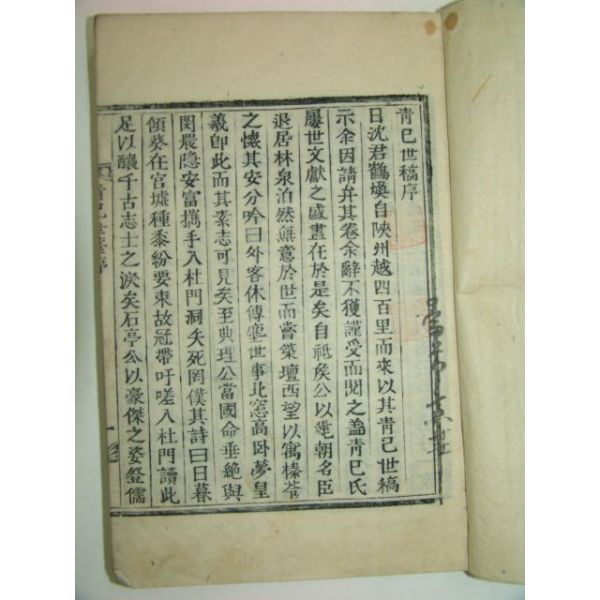 青已世稿序
日沈君鶴煥自陜州越四百里而來以其青已世稿
示余因請弁其卷余辭不獲謹受而閱之盖青已氏
屢世文獻之盛盡在於是矣自祗侯公以麗朝名臣
退居林泉泊然無意於世而嘗築壇西望以寓榛苓
之懷其安分吟曰外客休傳塵世事北窓高卧夢皇
羲卽此而其素志可見矣至典理公當國命垂絶與
閔農隐安富攜手入杜門洞矢死罔僕其詩曰日暮
傾葵在官墟種黍紛要束故冠帶吁嗟入杜門讀此
足以釀千古志士之淚矣石亭公以豪傑之姿登儒
青已世稿序